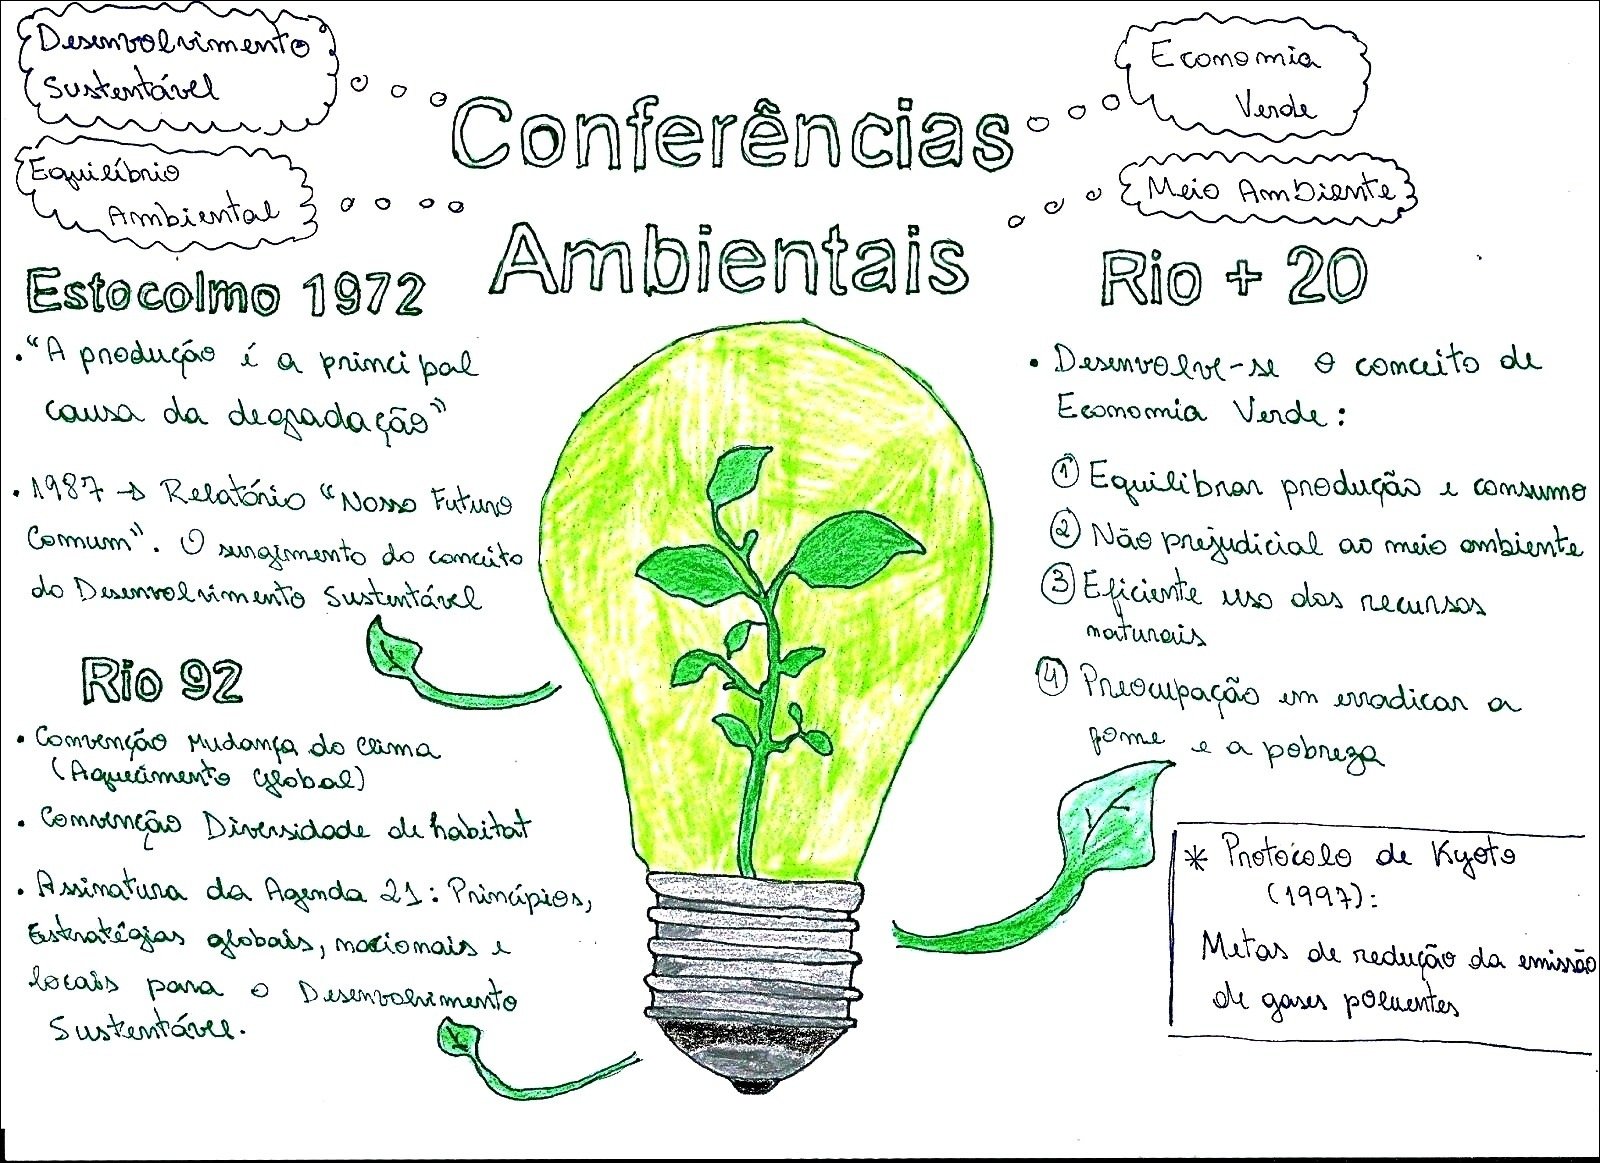 Desenvolvimento
Sustentável
Equilíbrio
Ambiental
Conferências
Ambientais
Economia
Verde
Meio Ambiente
Estocolmo 1972
• "A produção é a principal
causa da degradação"
• 1987 → Relatório "Nosso Futuro
Comum". O surgimento do conceito
do Desenvolvimento Sustentável
Rio 92
• Convenção Mudança do Clima
(Aquecimento Global)
• Convenção Diversidade de habitat
• Assinatura da Agenda 21: Princípios,
Estratégias globais, nacionais e
locais para o Desenvolvimento
Sustentável.
Rio + 20
• Desenvolve-se o conceito de
Economia Verde:
① Equilibrar produção e consumo
② Não prejudicial ao meio ambiente
③ Eficiente uso dos recursos
naturais
④ Preocupação em erradicar a
fome e a pobreza
* Protocolo de Kyoto
(1997):
Metas de redução da emissão
de gases poluentes